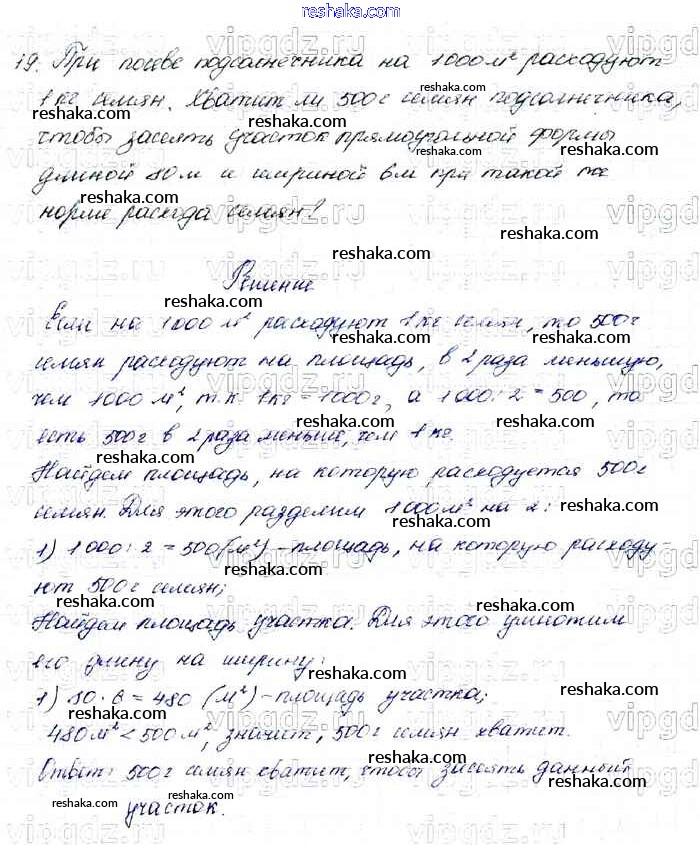 reshaka.com
19. При посеве подсолнечника на 1000 м² расходуют
1 кг семян. Хватит ли 500 г семян подсолнечника,
чтобы засеять участок прямоугольной формы
длиной 80 м и шириной 6 м при такой же
норме расхода семян?
Решение
Если на 1000 м² расходуют 1 кг семян, то 500 г
семян расходуют на площадь, в 2 раза меньшую,
чем 1000 м², т.к. 1 кг = 1000 г, а 1000 : 2 = 500, то
есть 500 г в 2 раза меньше, чем 1 кг.
Найдем площадь, на которую расходуется 500 г
семян. Для этого разделим 1000 м² на 2:
1) 1000 : 2 = 500 (м²) - площадь, на которую расходу-
ют 500 г семян;
Найдем площадь участка. Для этого умножим
его длину на ширину:
1) 80 · 6 = 480 (м²) - площадь участка;
480 м² < 500 м², значит, 500 г семян хватит.
Ответ: 500 г семян хватит, чтобы засеять данный
участок.